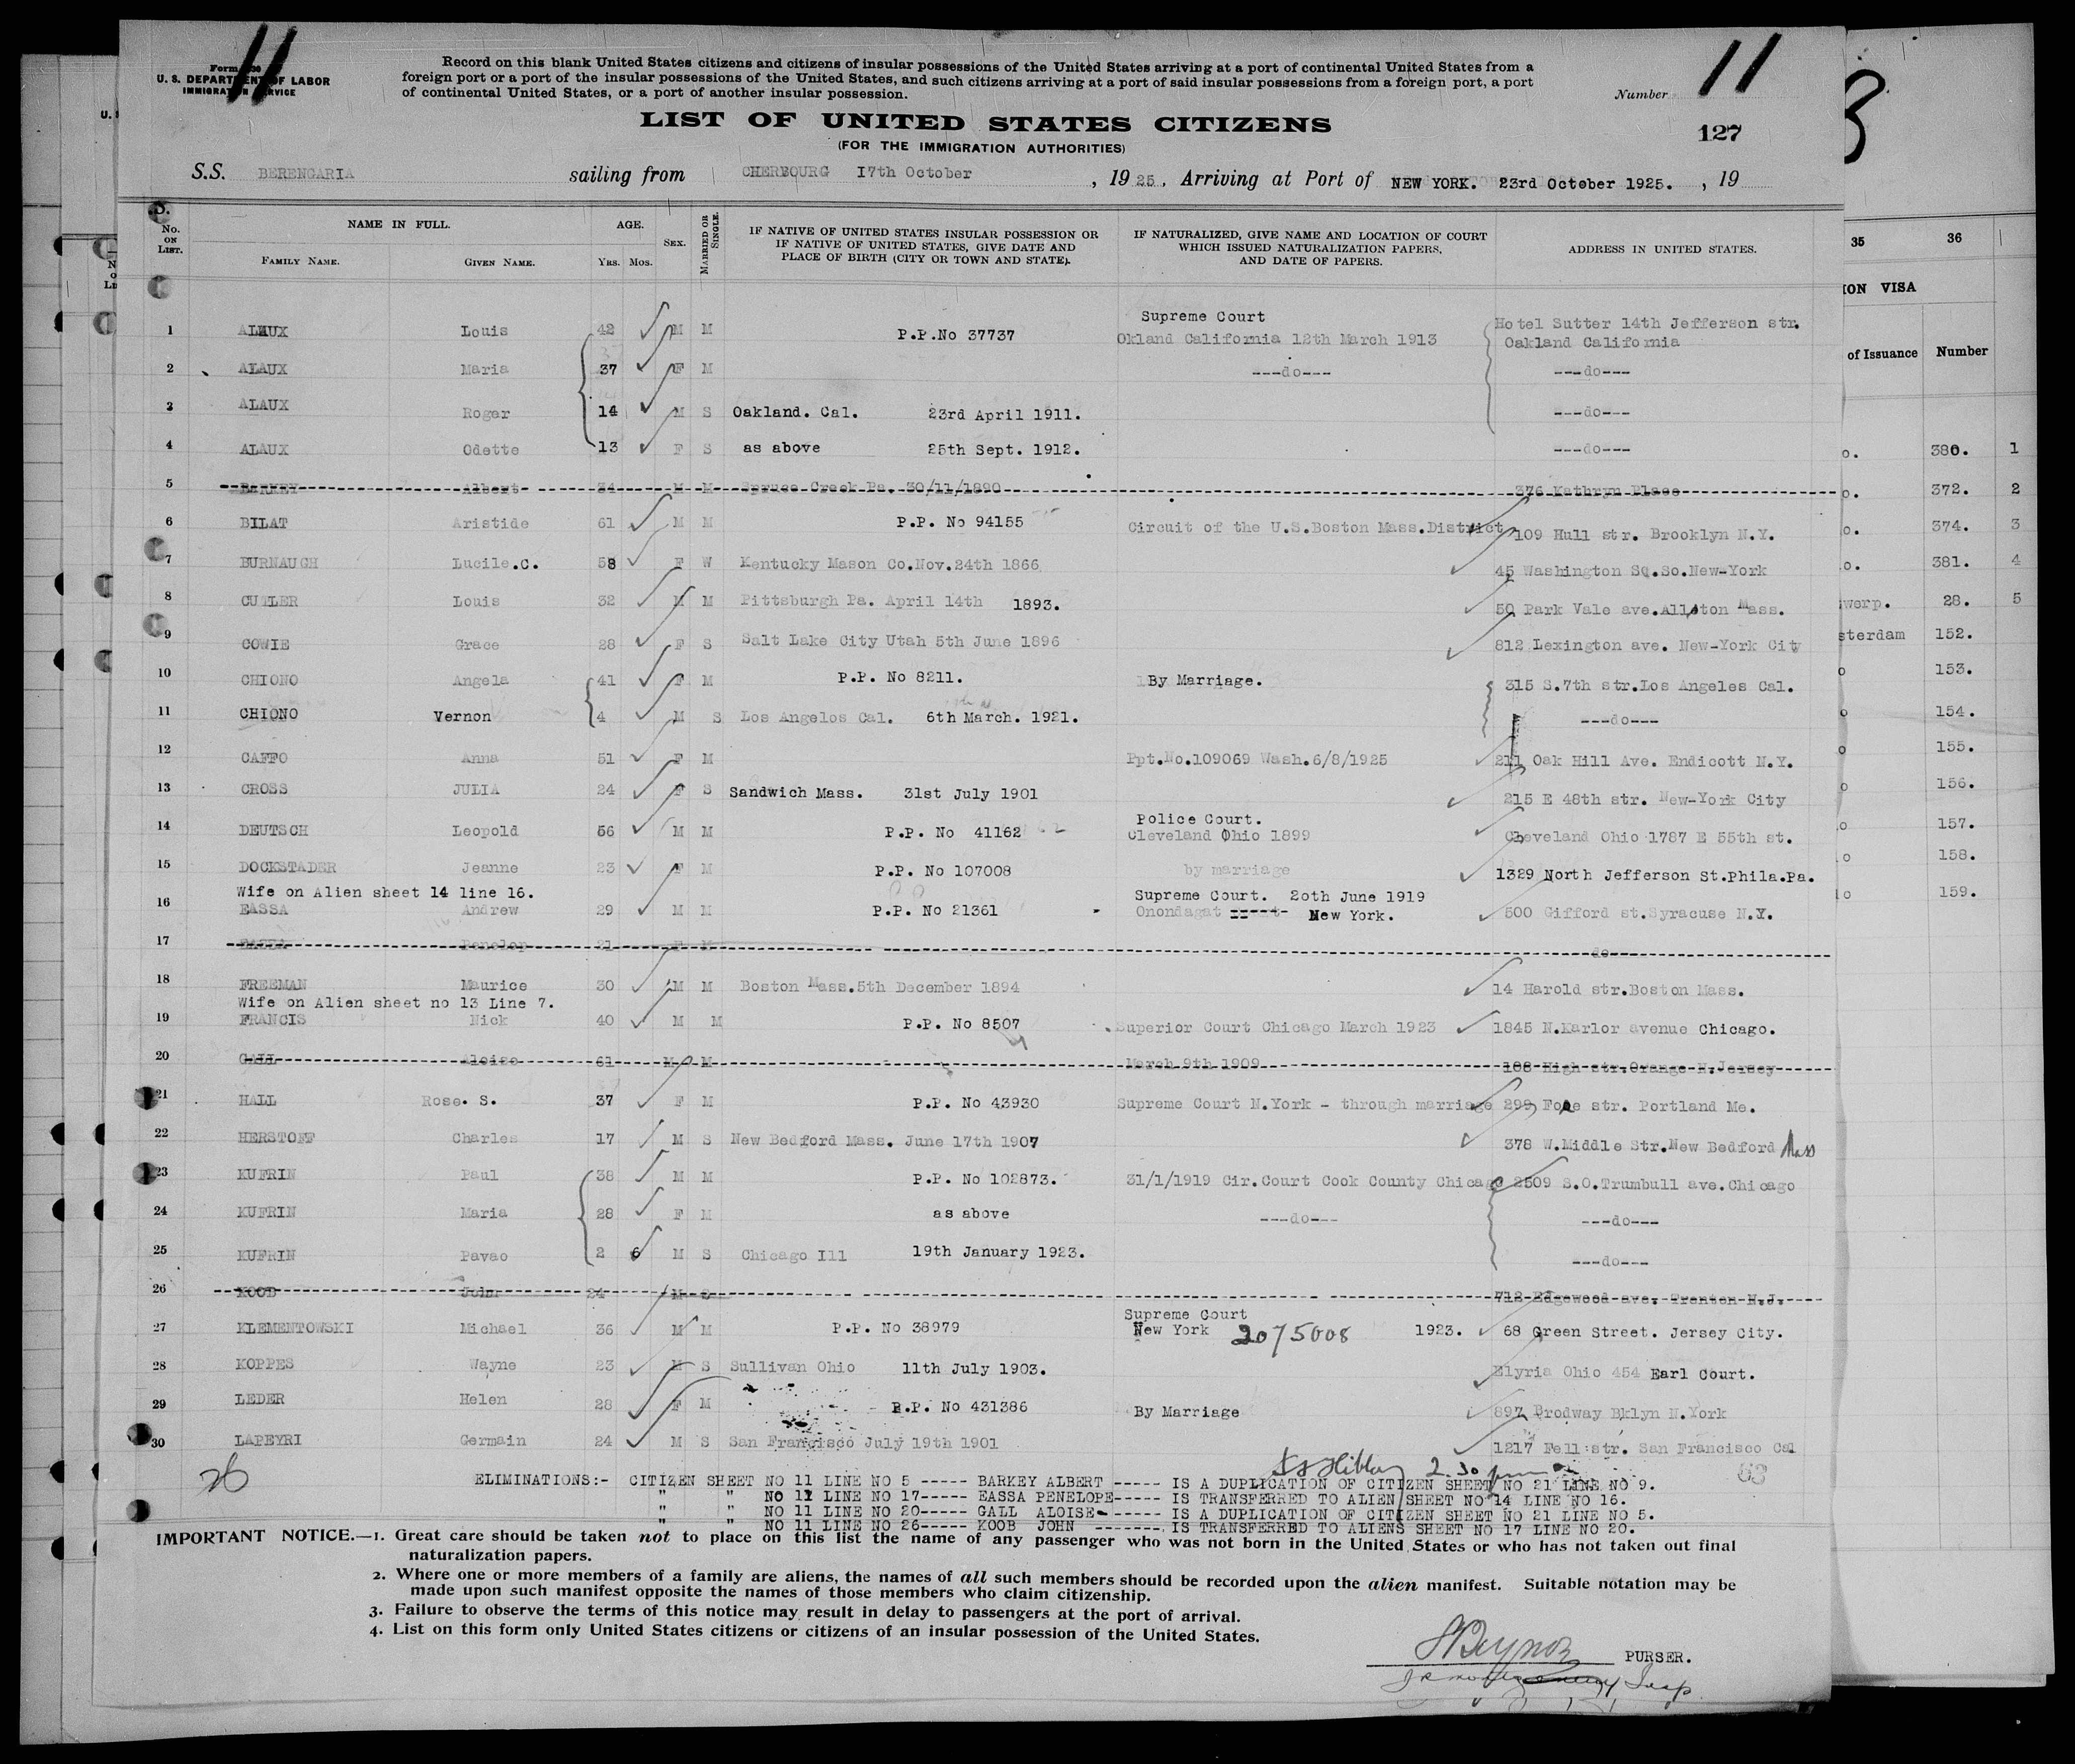 11
Form 630
U. S. DEPARTMENT OF LABOR
IMMIGRATION SERVICE
Record on this blank United States citizens and citizens of insular possessions of the United States arriving at a port of continental United States from a
foreign port or a port of the insular possessions of the United States, and such citizens arriving at a port of said insular possessions from a foreign port, a port
of continental United States, or a port of another insular possession.
Number 11
LIST OF UNITED STATES CITIZENS
(FOR THE IMMIGRATION AUTHORITIES)
127
S.S. BERENGARIA sailing from CHERBOURG 17th October , 19 25 , Arriving at Port of NEW YORK. 23rd October 1925. , 19
No. ON LIST. NAME IN FULL. FAMILY NAME. GIVEN NAME. AGE. Yrs. Mos. SEX. MARRIED OR SINGLE. IF NATIVE OF UNITED STATES INSULAR POSSESSION OR IF NATIVE OF UNITED STATES, GIVE DATE AND PLACE OF BIRTH (CITY OR TOWN AND STATE). IF NATURALIZED, GIVE NAME AND LOCATION OF COURT WHICH ISSUED NATURALIZATION PAPERS, AND DATE OF PAPERS. ADDRESS IN UNITED STATES.
1 ALAUX Louis 42 M M P.P.No 37737 Supreme Court Okland California 12th March 1913 Hotel Sutter 14th Jefferson str. Oakland California
2 ALAUX Maria 37 F M ---do--- ---do---
3 ALAUX Roger 14 M S Oakland. Cal. 23rd April 1911. ---do---
4 ALAUX Odette 13 F S as above 25th Sept. 1912. ---do---
5 BARKEY Albert 34 M M Spruce Creek Pa. 30/11/1890 376 Kathryn Place
6 BILAT Aristide 61 M M P.P. No 94155 Circuit of the U.S.Boston Mass.District 109 Hull str. Brooklyn N.Y.
7 BURNAUGH Lucile.C. 58 F W Kentucky Mason Co.Nov.24th 1866 45 Washington Sq.So.New-York
8 CUTLER Louis 32 M M Pittsburgh Pa. April 14th 1893. 50 Park Vale ave.Allston Mass.
9 COWIE Grace 28 F S Salt Lake City Utah 5th June 1896 812 Lexington ave. New-York City
10 CHIONO Angela 41 F M P.P. No 8211. By Marriage. 315 S.7th str.Los Angeles Cal.
11 CHIONO Vernon 4 M S Los Angelos Cal. 6th March. 1921. ---do---
12 CAFFO Anna 51 F M Ppt.No.109069 Wash.6/8/1925 211 Oak Hill Ave. Endicott N.Y.
13 CROSS JULIA 24 F S Sandwich Mass. 31st July 1901 215 E 48th str. New-York City
14 DEUTSCH Leopold 56 M M P.P. No 41162 Police Court. Cleveland Ohio 1899 Cleveland Ohio 1787 E 55th st.
15 DOCKSTADER Jeanne 23 F M P.P. No 107008 by marriage 1329 North Jefferson St.Phila.Pa.
Wife on Alien sheet 14 line 16.
16 EASSA Andrew 29 M M P.P. No 21361 Supreme Court. 20th June 1919 Onondagat New York. 500 Gifford st.Syracuse N.Y.
17 EASSA Penelop 21 F M ---do---
18 FREEMAN Maurice 30 M M Boston Mass.5th December 1894 14 Harold str.Boston Mass.
Wife on Alien sheet no 13 Line 7.
19 FRANCIS Nick 40 M M P.P. No 8507 Superior Court Chicago March 1923 1845 N.Karlor avenue Chicago.
20 GALL Aloise 61 M M March 9th 1909 188 High str.Orange N.Jersey
21 HALL Rose. S. 37 F M P.P. No 43930 Supreme Court N.York - through marriage 299 Fore str. Portland Me.
22 HERSTOFF Charles 17 M S New Bedford Mass. June 17th 1907 378 W.Middle Str.New Bedford Mass
23 KUFRIN Paul 38 M M P.P. No 102873. 31/1/1919 Cir.Court Cook County Chicago 2509 S.O.Trumbull ave.Chicago
24 KUFRIN Maria 28 F M as above ---do--- ---do---
25 KUFRIN Pavao 2 6 M S Chicago Ill 19th January 1923. ---do---
26 KOOB John 24 M S 712 Edgewood ave. Trenton N.J.
27 KLEMENTOWSKI Michael 36 M M P.P. No 38979 Supreme Court New York 2075008 1923. 68 Green Street. Jersey City.
28 KOPPES Wayne 23 M S Sullivan Ohio 11th July 1903. Elyria Ohio 454 Earl Court.
29 LEDER Helen 28 F M P.P. No 431386 By Marriage 897 Brodway Bklyn N.York
30 LAPEYRI Germain 24 M S San Francisco July 19th 1901 1217 Fell str. San Francisco Cal
26
2.30 pm
63
ELIMINATIONS:- CITIZEN SHEET NO 11 LINE NO 5 ----- BARKEY ALBERT ----- IS A DUPLICATION OF CITIZEN SHEET NO 21 LINE NO 9.
" " NO 11 LINE NO 17----- EASSA PENELOPE----- IS TRANSFERRED TO ALIEN SHEET NO 14 LINE NO 16.
" " NO 11 LINE NO 20----- GALL ALOISE------ IS A DUPLICATION OF CITIZEN SHEET NO 21 LINE NO 5.
" " NO 11 LINE NO 26----- KOOB JOHN --------. IS TRANSFERRED TO ALIENS SHEET NO 17 LINE NO 20.
IMPORTANT NOTICE.—1. Great care should be taken not to place on this list the name of any passenger who was not born in the United States or who has not taken out final
naturalization papers.
2. Where one or more members of a family are aliens, the names of all such members should be recorded upon the alien manifest. Suitable notation may be
made upon such manifest opposite the names of those members who claim citizenship.
3. Failure to observe the terms of this notice may result in delay to passengers at the port of arrival.
4. List on this form only United States citizens or citizens of an insular possession of the United States.
PURSER.
Insp
35 36
ION VISA
of Issuance Number
o. 380. 1
o. 372. 2
o. 374. 3
o. 381. 4
werp. 28. 5
sterdam 152.
o 153.
o 154.
o 155.
o 156.
o 157.
o 158.
o 159.